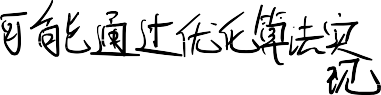 可能通过优化算法实
现